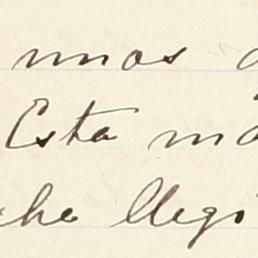 unos
Esta ma
che llegi